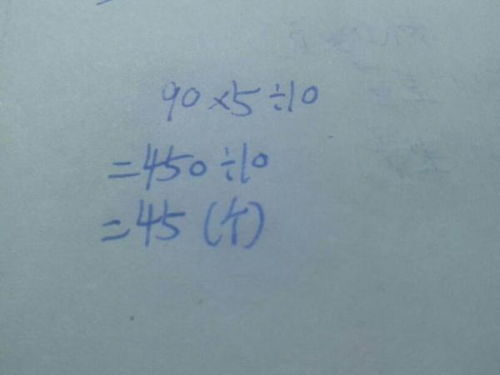 90×5÷10
=450÷10
=45(个)